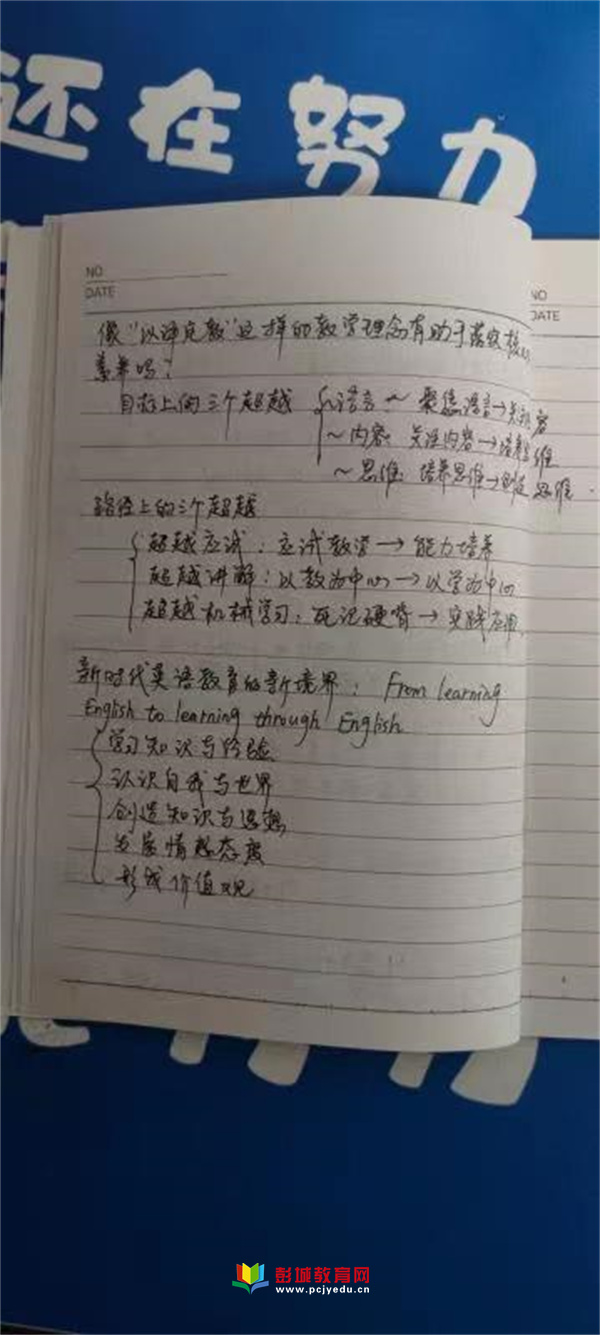 还在努力
NO
DATE
NO
DATE
像“以评定教”这样的教学理念有助于落实核心
素养吗？
目标上的三个超越 {~语言～聚焦语言→关注内容
～内容：关注内容→培养思维
～思维：培养思维→创造思维.
路径上的三个超越
超越应试：应试教学→能力培养
超越讲解：以教为中心→以学为中心
超越机械学习：死记硬背→实践应用.
新时代英语教育的新境界：From learning
English to learning through English
学习知识与经验
认识自我与世界
创造知识与思想
发展情感态度
形成价值观
彭城教育网
www.pcjyedu.cn